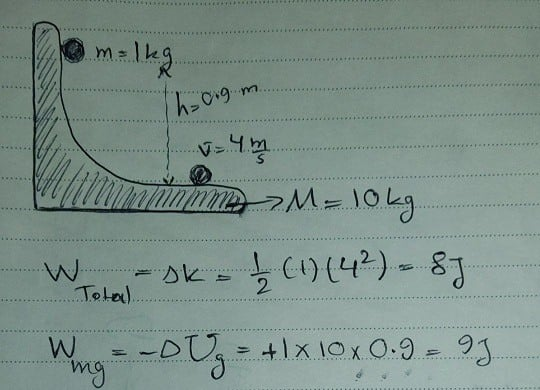 m = 1kg
h = 0.9 m
v = 4 m/s
M = 10kg
W Total = ΔK = 1/2 (1)(4²) = 8J
W mg = -ΔUg = +1×10×0.9 = 9J